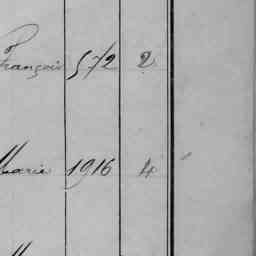 François 572 2
Marie 1916 4